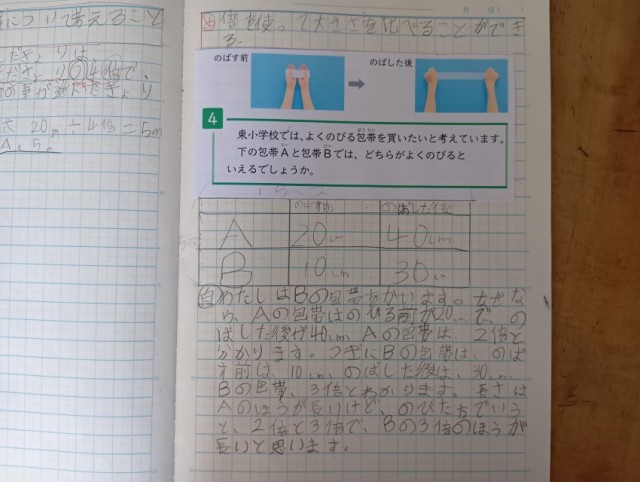 について考えること
4倍で、
式 20m÷4倍=5m
A. 5m
月 日( )
め 倍を使って大きさを比べることができ
る。
のばす前
のばした後
4
東小学校では、よくのびる包帯を買いたいと考えています。
ほうたい
下の包帯Aと包帯Bでは、どちらがよくのびると
いえるでしょうか。
のばす前 のばした後
A 20cm 40cm
B 10cm 30cm
自 わたしはBの包帯をかいます。なぜな
ら、Aの包帯はのびる前が20cmで、の
ばした後が40cm、Aの包帯は、2倍と
分かります。つぎにBの包帯は、のば
す前は、10cm、のばした後は、30cm、
Bの包帯、3倍とわかります。長さは
Aのほうが長いけど、のびたちでいう
と、2倍と3倍で、Bの3倍のほうが
長いと思います。